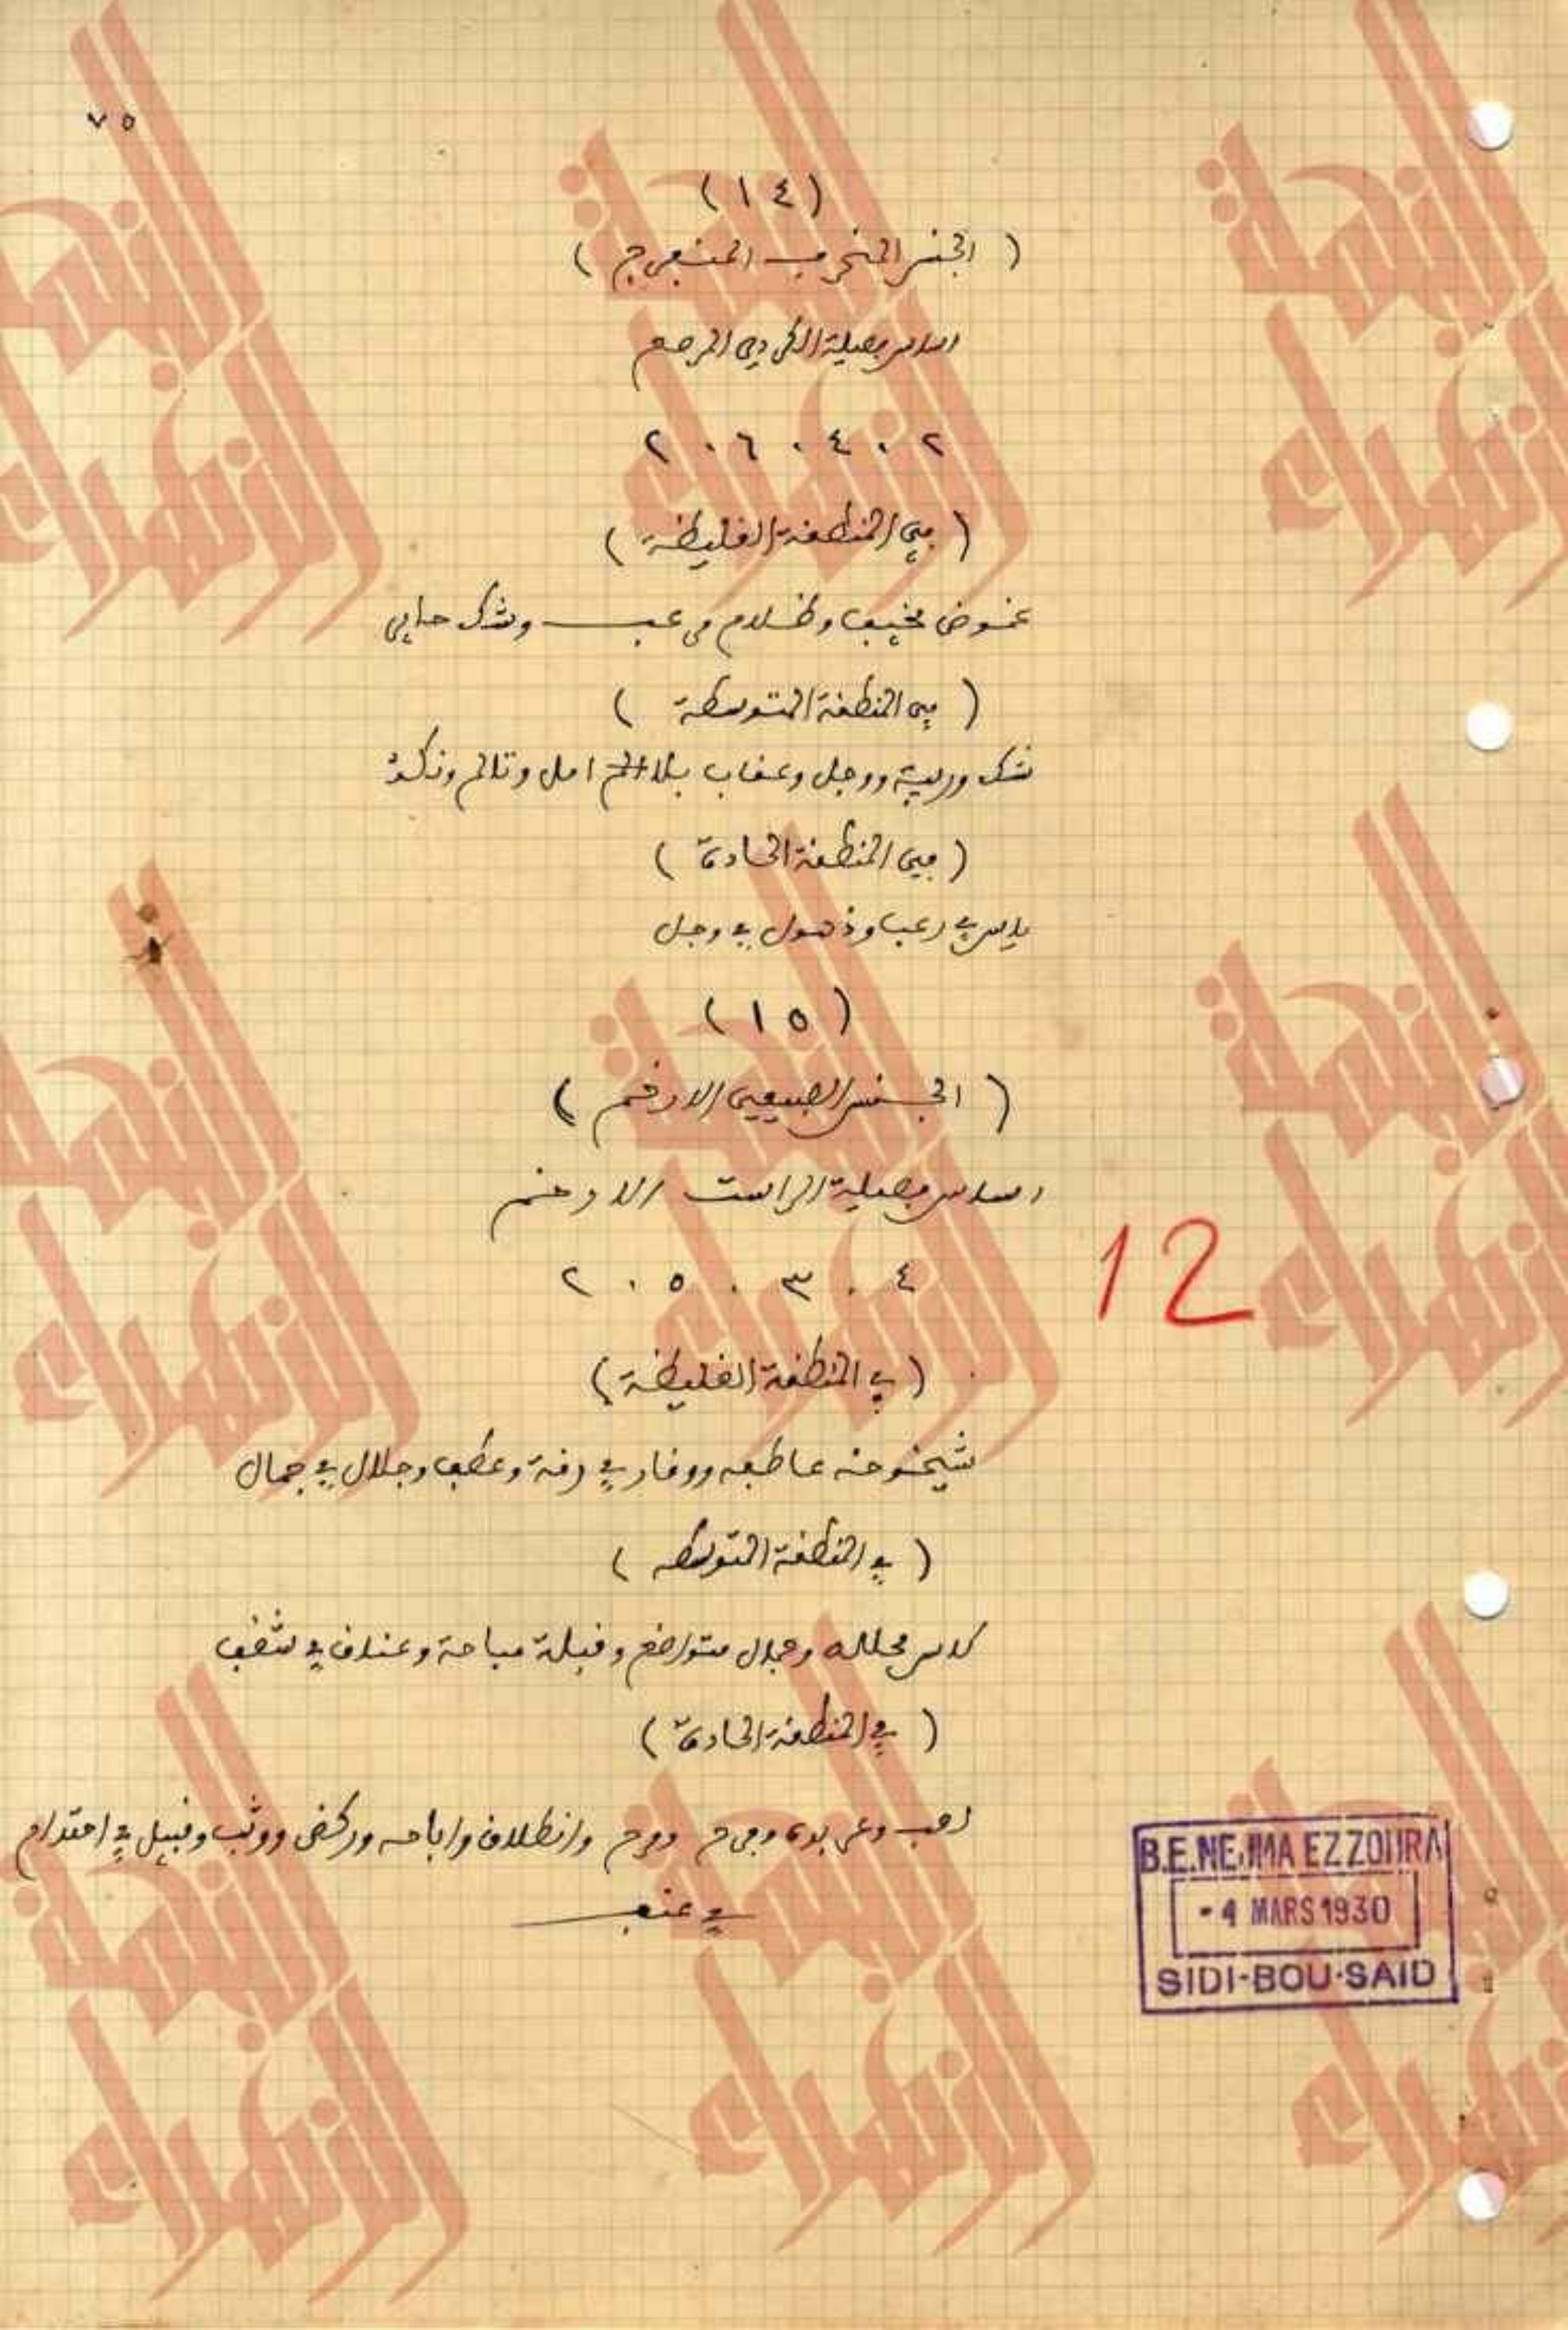 ٧٥
(١٤)
(الجنس المنحرف المنفرج)
اساس فصيلة الكردي المرصع
٢٠٦٠٤٠٢
(في المنطقة الغليظة)
غموض مخيف وظلام مرعب وشك حابي
(في المنطقة المتوسطة)
شك وريبة ووجل وعقاب بلا امل وتالم ونكد
(في المنطقة الحادة)
ياس في رعب وذهول في وجل
(١٥)
(الجنس الطبيعي الارخم)
اساس فصيلة الراست الارخم
٤ . ٣ . ٥ . ٢
(في المنطقة الغليظة)
شيخوخه عاطفه ووقار في رقة وعطف وجلال في جمال
(في المنطقة المتوسطه)
متواضع وقبلة مباحة وعناق في شغف
(في المنطقة الحادة)
لعب وعربدة ومرح وانطلاق واباحه وركض ووثب وقبل في احتدام
في عنف
12
B.E.NEJMA EZZOHRA
- 4 MARS 1930
SIDI-BOU-SAID
النجمة الزهراء